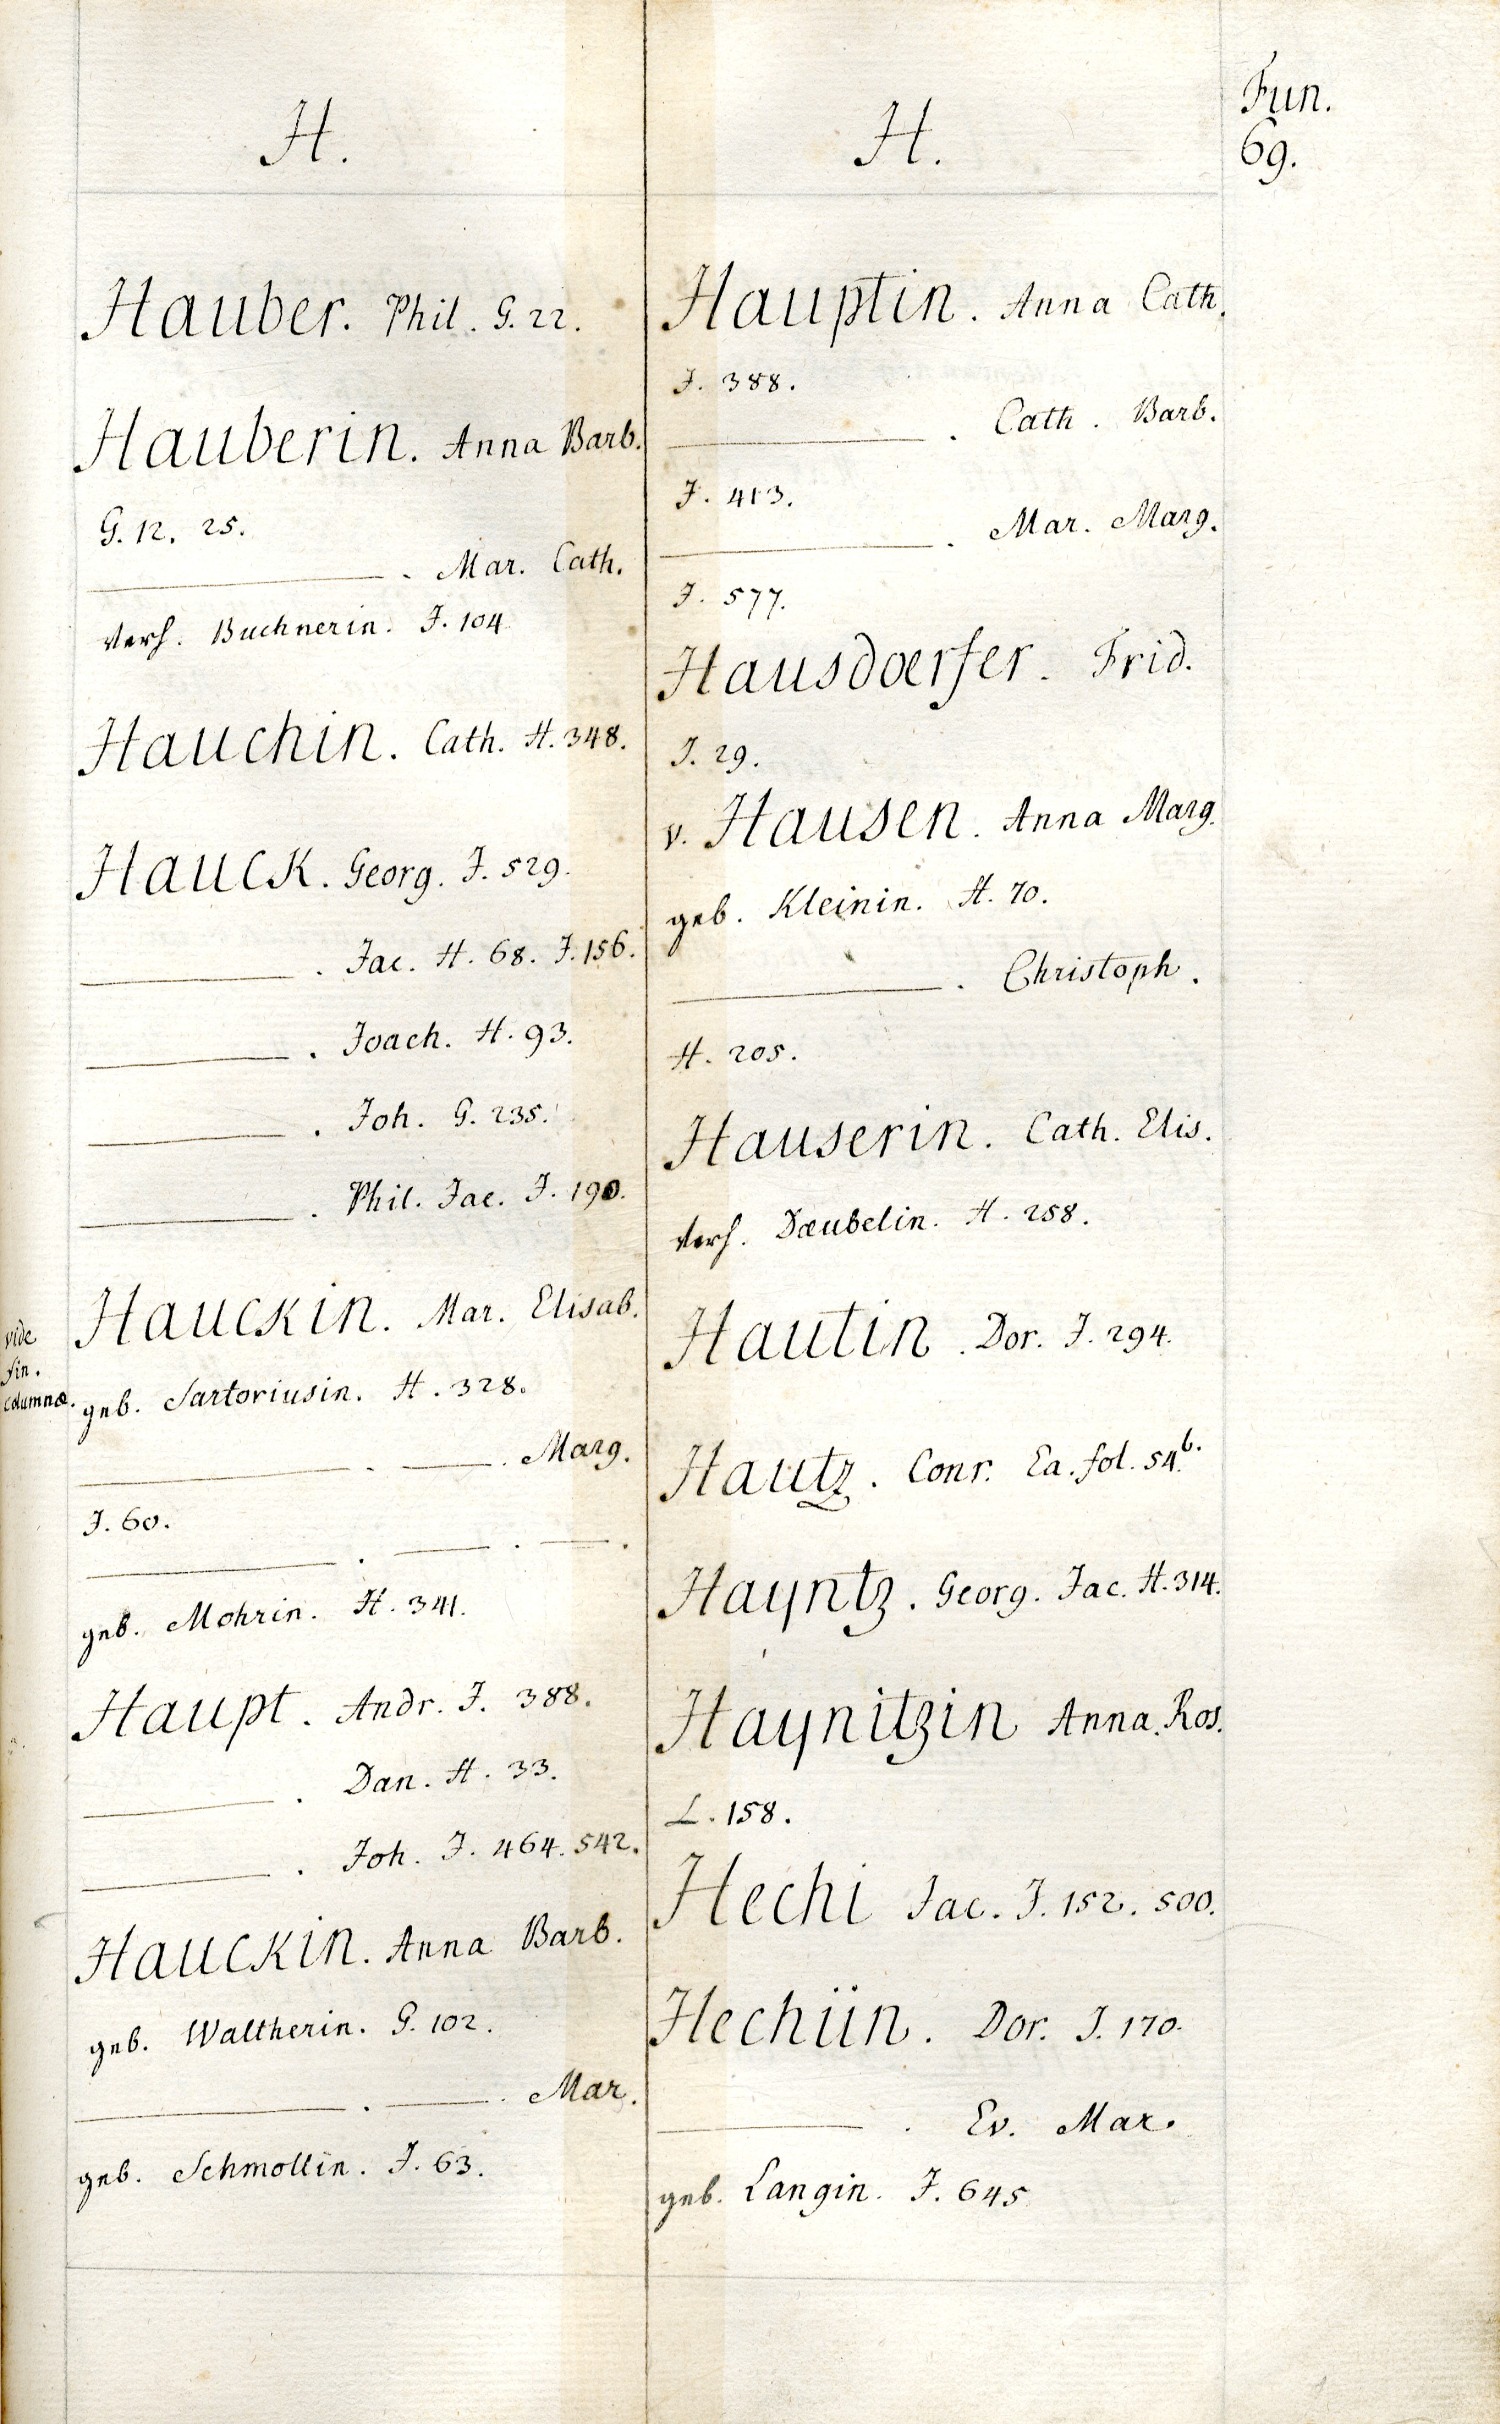 Fun.
69.
H.
Hauber. Phil. G. 22.
Hauberin. Anna Barb.
G. 12. 25.
———. Mar. Cath.
verh. Buchnerin. J. 104
Hauchin. Cath. H. 348.
Hauck. Georg. J. 529.
———. Jac. H. 68. J. 156.
———. Joach. H. 93.
———. Joh. G. 235.
———. Phil. Jac. J. 190.
Hauckin. Mar. Elisab.
vide
fin.
columnæ.
geb. Sartoriusin. H. 328.
———. ———. Marg.
J. 60.
———. ———. ———.
geb. Mohrin. H. 341.
Haupt. Andr. J. 388.
———. Dan. H. 33.
———. Joh. J. 464. 542.
Hauckin. Anna Barb.
geb. Waltherin. G. 102.
———. ———. Mar.
geb. Schmollin. J. 63.
H.
Hauptin. Anna Cath.
J. 388.
———. Cath. Barb.
J. 413.
———. Mar. Marg.
J. 577.
Hausdoerfer. Frid.
J. 29.
v. Hausen. Anna Marg.
geb. Kleinin. H. 70.
———. Christoph.
H. 205.
Hauserin. Cath. Elis.
verh. Dæubelin. H. 258.
Hautin. Dor. J. 294.
Hautz. Conr. Ea. fol. 54.b.
Hayntz. Georg. Jac. H. 314.
Haynitzin Anna. Ros.
L. 158.
Hechi Jac. J. 152. 500.
Hechiin. Dor. J. 170.
———. Ev. Mar.
geb. Langin. J. 645